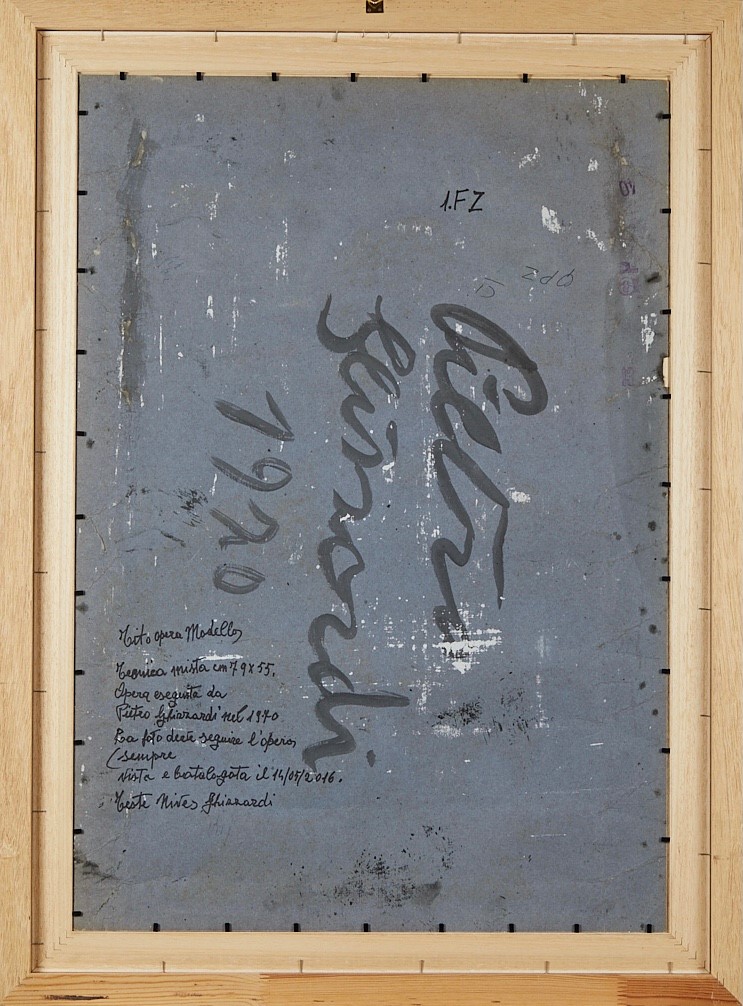 1.FZ
Pietro
Ghizzardi
1970
Tito opera Modella
Tecnica mista cm 79x55.
Opera eseguita da
Pietro Ghizzardi nel 1970
La foto deve seguire l'opera
(sempre
Vista e Catalogata il 14/05/2016.
Nives Ghizzardi